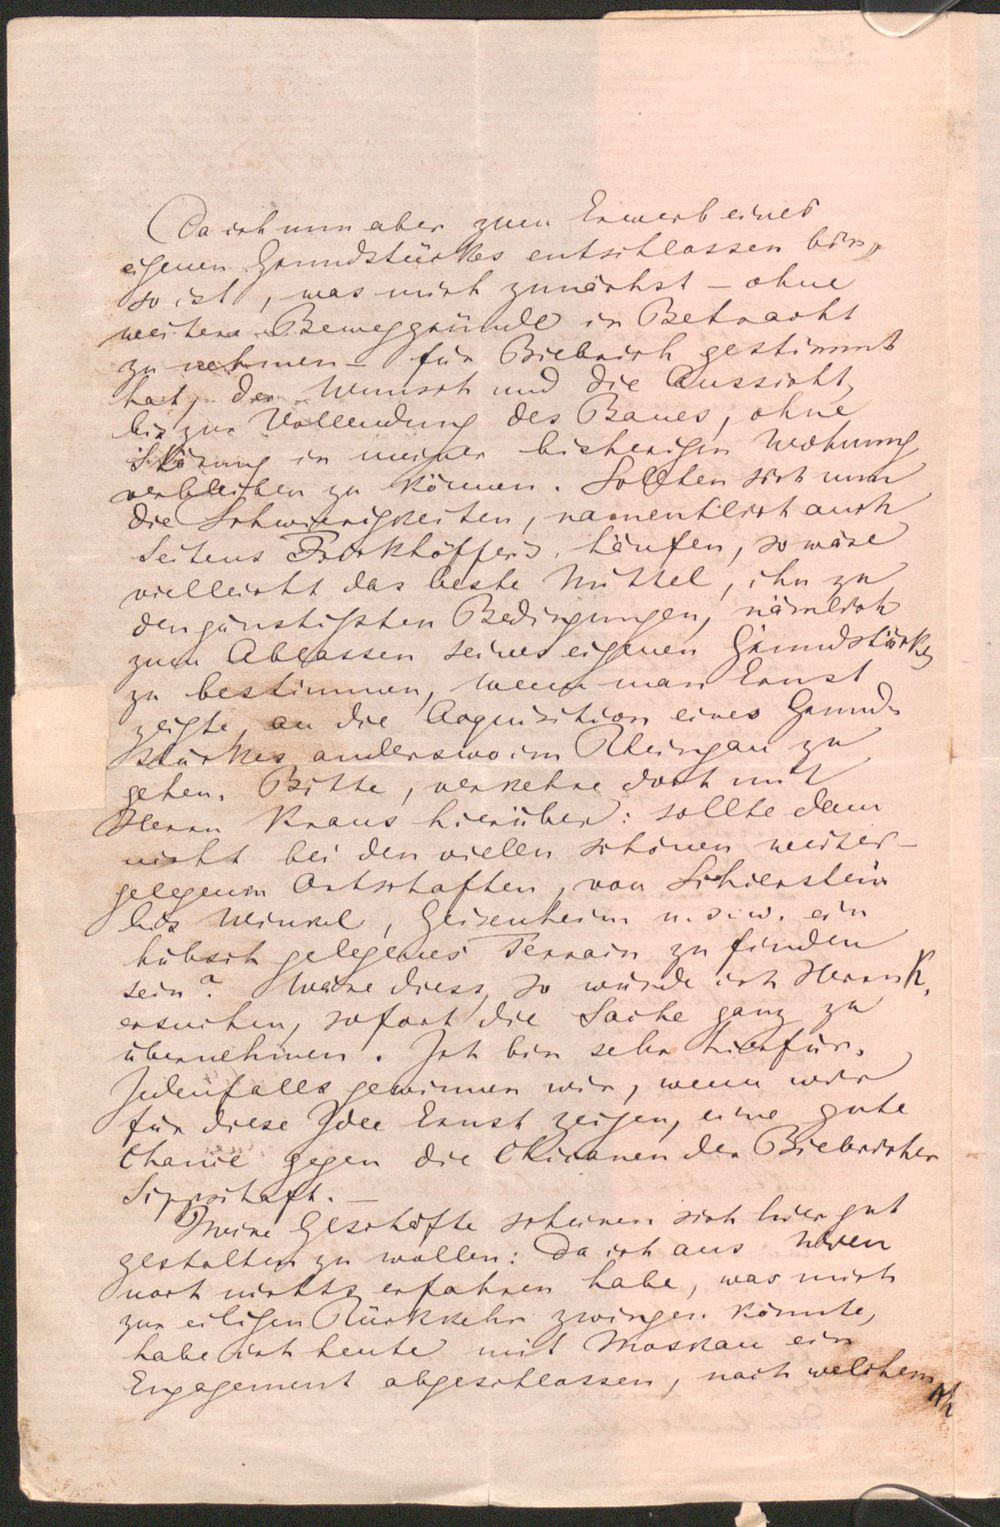 Da ich nun aber zum Erwerb eines
eigenen Grundstückes entschlossen bin,
so ist, was mich zunächst – ohne
weitere Beweggründe in Betracht
zu nehmen – für Biebrich gestimmt
hat, der Wunsch und die Aussicht,
bis zur Vollendung des Baues, ohne
Störung in meiner bisherigen Wohnung
verbleiben zu können. Sollten sich nun
die Schwierigkeiten, namentlich auch
Seitens Frickhöffer's, häufen, so wäre
vielleicht das beste Mittel, ihn zu
den günstigsten Bedingungen, nämlich
zum Ablassen seines eigenen Grundstückes
zu bestimmen, wenn man Ernst
zeigte, an die Acquisition eines Grund-
stückes anderswo im Rheingau zu
gehen. Bitte, verkehre doch mit
Herrn Kraus hierüber: sollte denn
nicht bei den vielen schönen weiter-
gelegenen Ortschaften, von Schierstein
bis Winkel, Geisenheim u.s.w. ein
hübsch gelegenes Terrain zu finden
sein? Wäre diess, so würde ich Herrn K.
ersuchen, sofort die Sache ganz zu
übernehmen. Ich bin sehr hierfür.
Jedenfalls gewinnen wir, wenn wir
für diese Idee Ernst zeigen, eine gute
Chance gegen die Chicanen der Biebricher
Sippschaft. —
Meine Geschäfte scheinen sich hier gut
gestalten zu wollen: da ich aus Wien
noch nichts erfahren habe, was mich
zur eiligen Rückkehr zwingen könnte,
habe ich heute mit Moskau ein
Engagement abgeschlossen, nach welchem
ich